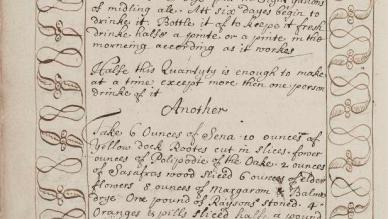 of midling ale. Att six dayes begin to
drinke it. Bottle it of to keepe it fresh
drinke halfe a pinte or a pinte in the
morneing according as it workes
Halfe this Quantyty is enough to make
at a time except more then one person
drinke of it
Another
Take 6 Ounces of Sena 10 ounces of
Yellow dock Rootes cut in slices, fower
ounces of Polipodie of the Oake 2 ounces
of Sasafras wood sliced 6 ounces of elder
flowers 8 ounces of Margarom & Balme
drye One pound of Raysons stoned 4
Oranges & pills sliced halfe a pound